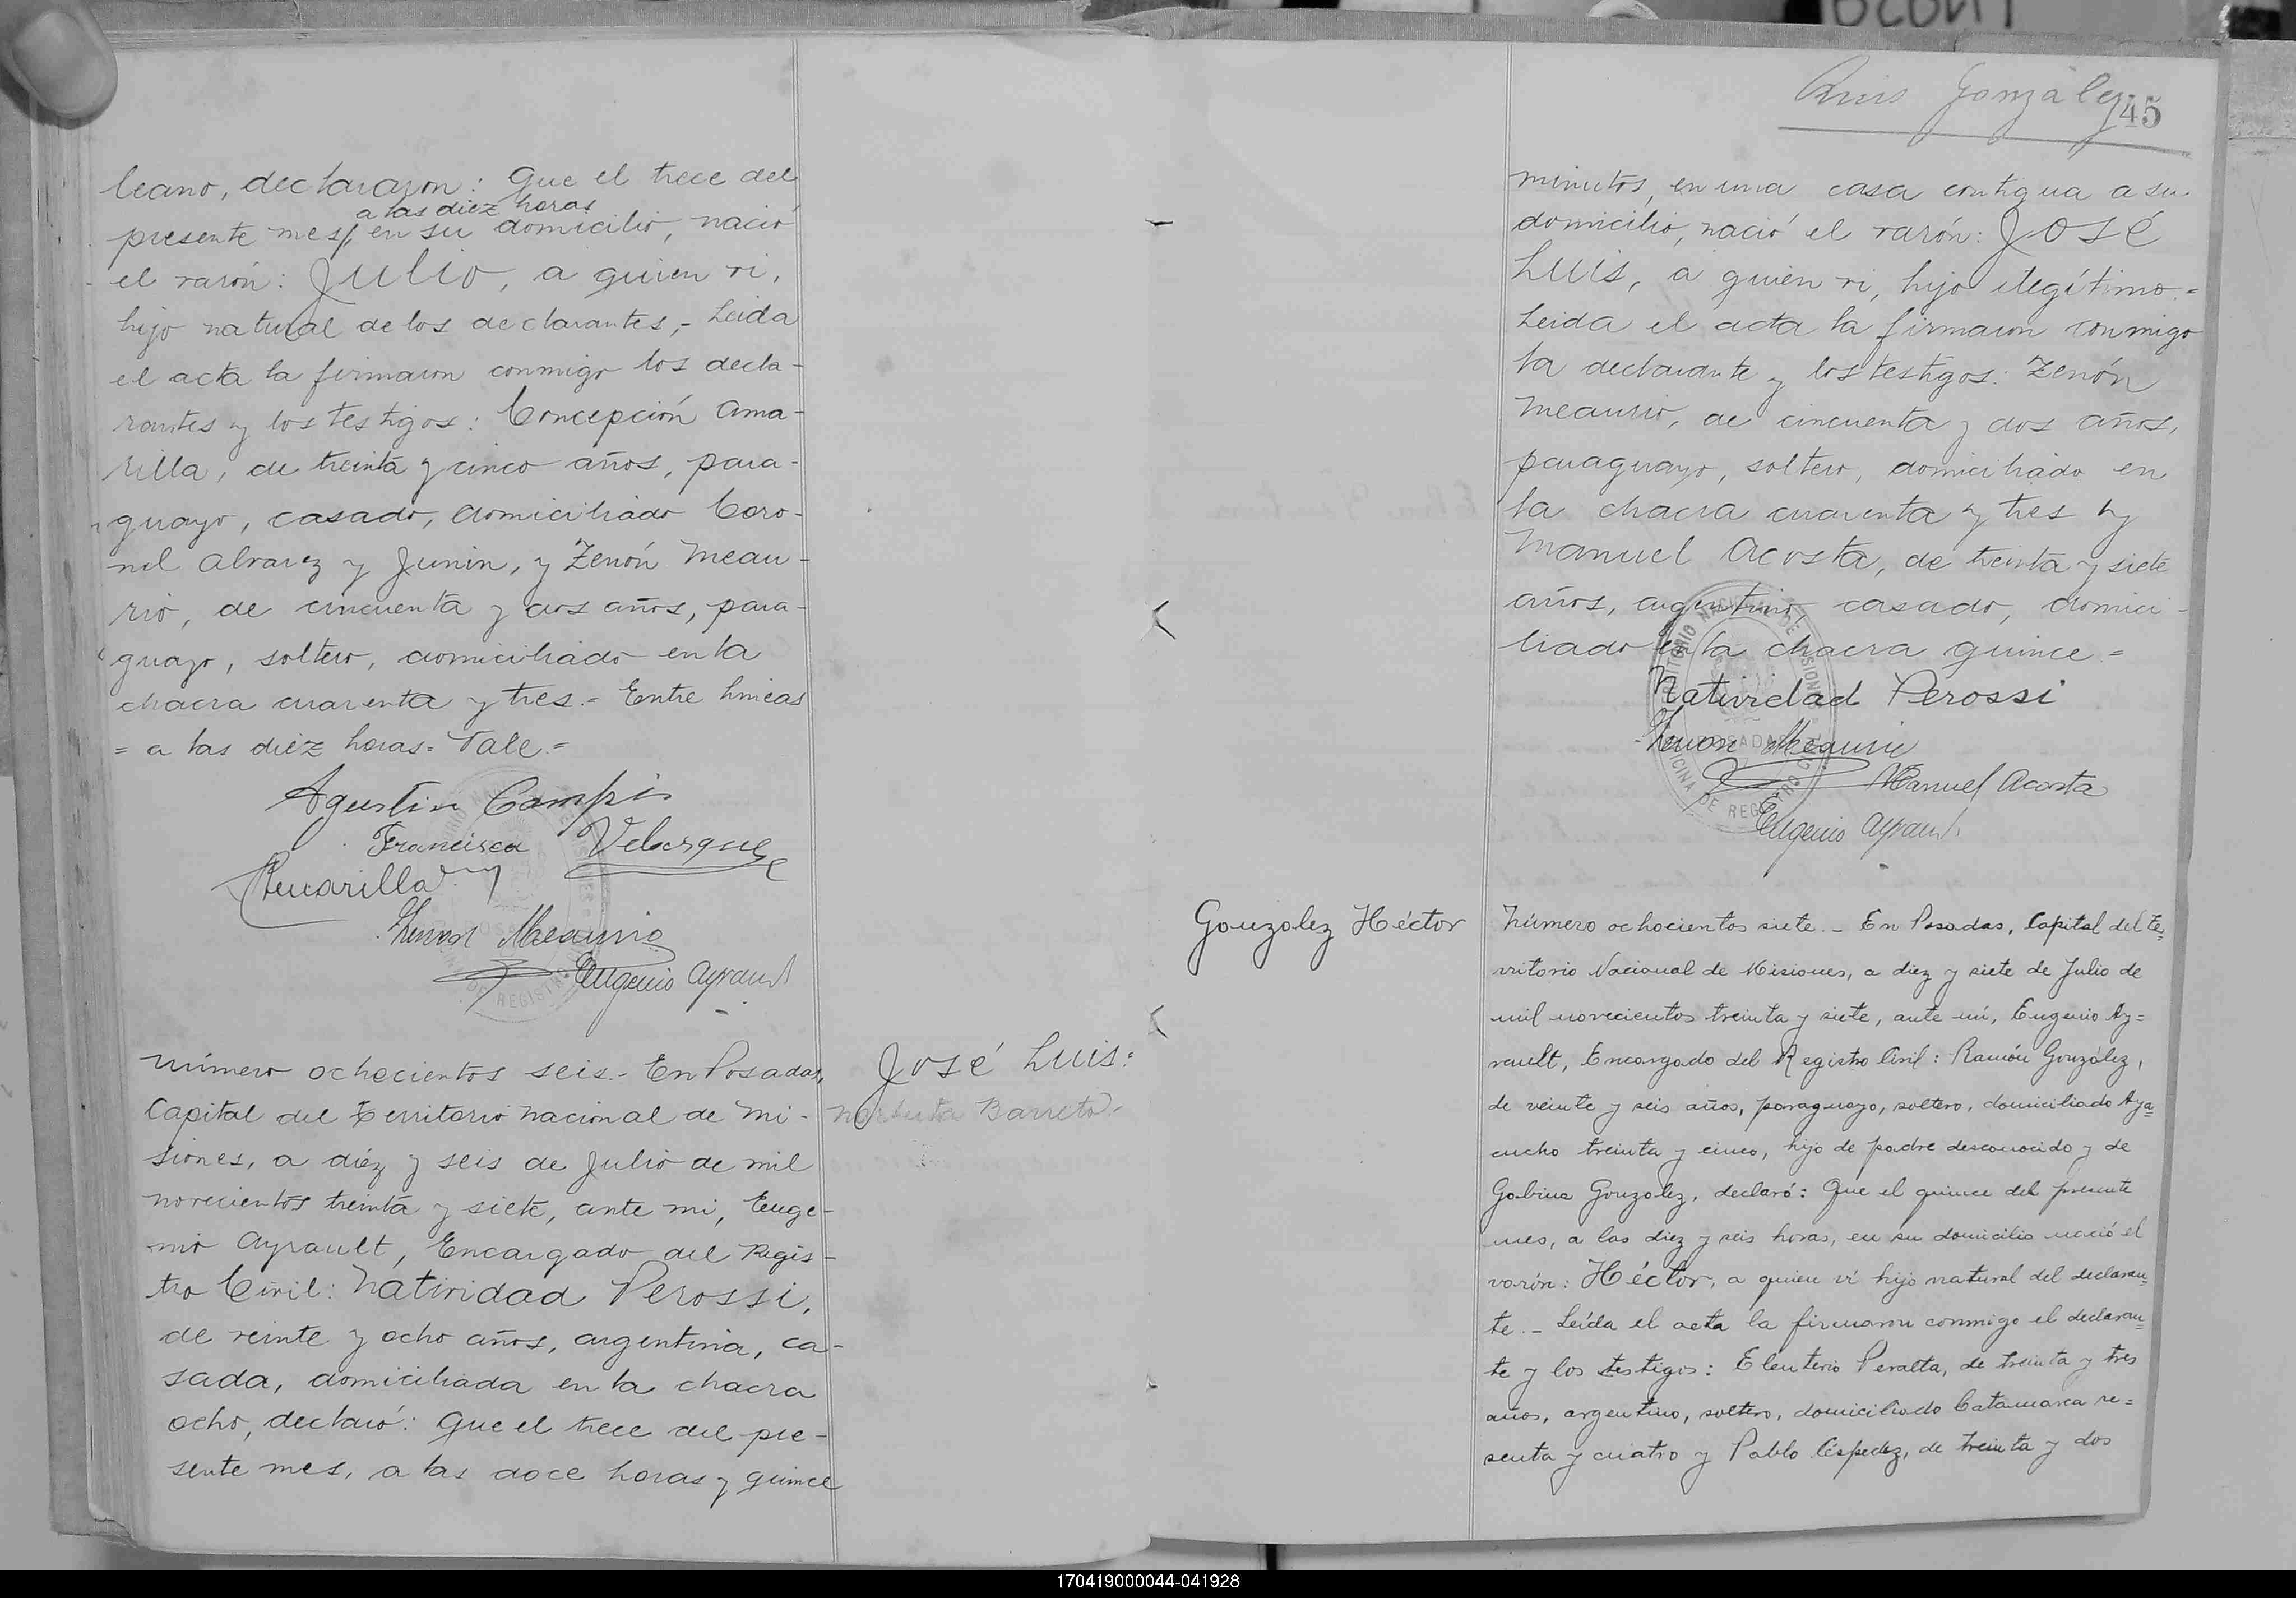 leano, declararon: Que el trece del
a las diez horas
presente mes, en su domicilio, nació
el varón: Julio, a quien vi,
hijo natural de los declarantes,- Leida
el acta la firmaron conmigo los decla-
rantes y los testigos: Concepción Ama-
rilla, de treinta y cinco años, para-
guayo, casado, domiciliado Coro-
nel Alvarez y Junin, y Zenón Meau-
rio, de cincuenta y dos años, para-
guayo, soltero, domiciliado en la
chacra cuarenta y tres.- Entre lineas
= a las diez horas= Vale.=
Agustin Campis
Francisca Velasque
Amarilla
Zenon Meaurio
Eugenio Ayrault
Número ochocientos seis.- En Posadas,
Capital del Territorio Nacional de Mi-
siones, a diez y seis de Julio de mil
novecientos treinta y siete, ante mi, Euge-
nio Ayrault, Encargado del Regis-
tro Civil: Natividad Perossi,
de veinte y ocho años, argentina, ca-
sada, domiciliada en la chacra
ocho, declaró: Que el trece del pre-
sente mes, a las doce horas y quince
José Luis=
Barreto-
González
45
minutos, en una casa contigua a su
domicilio, nació el varón: JOSÉ
LUIS, a quien vi, hijo ilegítimo.=
Leida el acta la firmaron conmigo
la declarante y los testigos: Zenón
Meaurio, de cincuenta y dos años,
paraguayo, soltero, domiciliado en
la chacra cuarenta y tres y
Manuel Acosta, de treinta y siete
años, argentino, casado, domici-
liado en la chacra quince=
Natividad Perossi
Zenon Meaurio
Manuel Acosta
Eugenio Ayrault
Gonzalez Héctor
Número ochocientos siete.- En Posadas, Capital del te=
rritorio Nacional de Misiones, a diez y siete de Julio de
mil novecientos treinta y siete, ante mí, Eugenio Ay=
rault, Encargado del Registro Civil: Ramón González,
de veinte y seis años, paraguayo, soltero, domiciliado Aya=
cucho treinta y cinco, hijo de padre desconocido y de
Gabina Gonzalez, declaró: Que el quince del presente
mes, a las diez y seis horas, en su domicilio nació el
varón: Héctor, a quien ví hijo natural del declaran=
te.- Leída el acta la firmaron conmigo el declaran=
te y los testigos: Eleuterio Peralta, de treinta y tres
años, argentino, soltero, domiciliado Catamarca se=
senta y cuatro y Pablo Céspedez, de treinta y dos
170419000044-041928